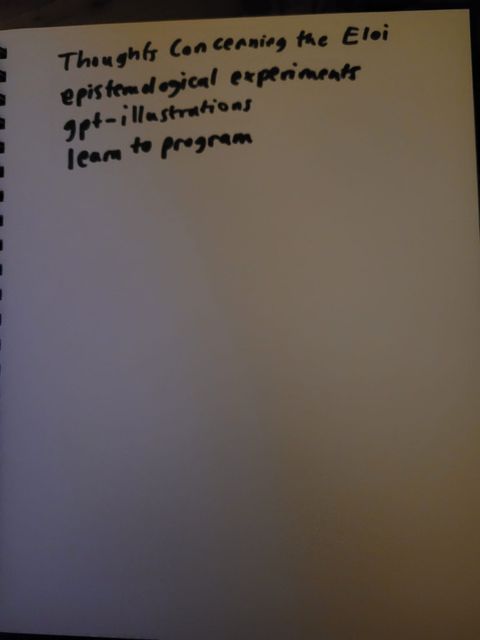 Thoughts Concerning the Eloi
epistemological experiments
gpt-illustrations
learn to program